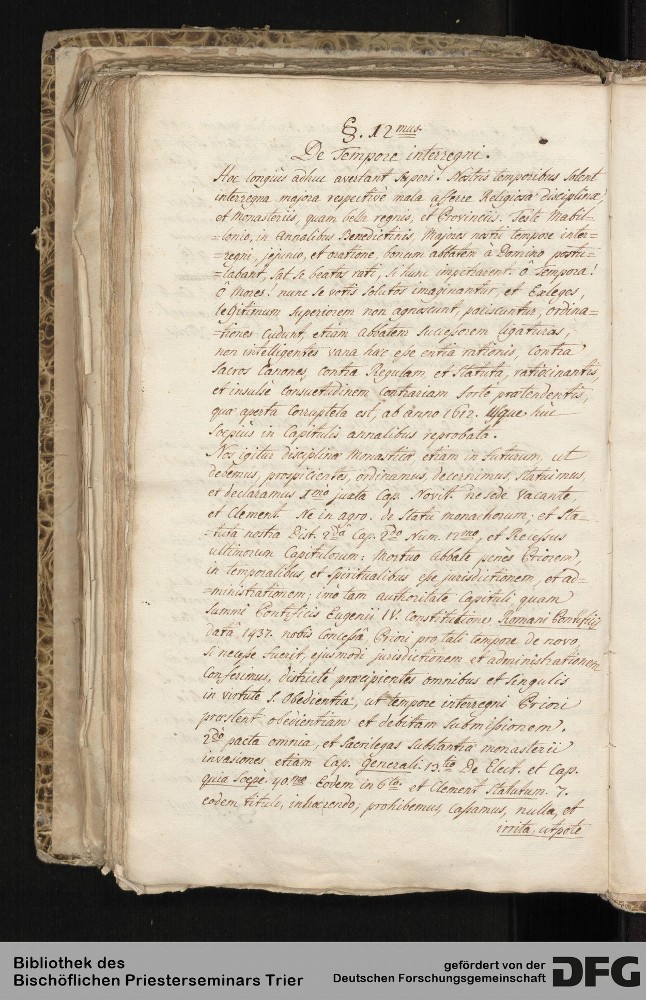 §. 12mus.
De Tempore interregni.
Hoc longius adhuc avertant Superi! Nostris temporibus solent
interregna majora respective mala afferre Religiosæ disciplinæ,
et Monasteriis, quam bella regnis, et Provinciis. Teste Mabil-
=lonio, in Annalibus Benedictinis, Majores nostri tempore inter-
=regni, jejunio, et oratione, bonum abbatem à Domino postu-
=labant, sat se beatos rati, si hunc impetrarent. ô Tempora!
ô Mores! nunc se votis solutos imaginantur, et Exleges,
legitimum Superiorem non agnoscunt, paciscuntur, ordina=
=tiones cudunt, etiam abbatem Successorem ligaturas,
non intelligentes vana hæc esse entia rationis, contra
Sacros Canones, contra Regulam et Statuta, ratiocinantis,
et insulse consuetudinem contrariam forte prætendentis,
quæ aperta corruptela est, ab anno 1612. usque huc
Sæpius in Capitulis annalibus reprobata.
Nos igitur disciplinæ monasticæ, etiam in futurum, ut
debemus, prospicientes, ordinamus, decernimus, statuimus,
et declaramus 1mo juxta Cap. Novit. ne sede vacante,
et Clement. Ne in agro. de Statu monachorum; et Sta-
=tuta nostra Dist. 2dâ Cap. 2do Num. 12mo, et Recessus
ultimorum Capitulorum: Mortuo abbate penes Priorem,
in temporalibus et Spiritualibus esse jurisdictionem, et ad-
=ministrationem; imò tam authoritate Capituli quam
Summi Pontificis Eugenii IV. Constitutione Romani Pontificis
datâ 1437. nobis concessâ, Priori pro tali tempore de novo,
si necesse fuerit, ejusmodi jurisdictionem et administrationem
conferimus, districtè præcipientes omnibus et singulis
in virtute S. Obedientiæ, ut tempore interregni Priori
præstent obedientiam et debitam submissionem.
2do pacta omnia, et sacrilegas substantiæ monasterii
invasiones etiam Cap. generali. 13tio De Elect. et Cap.
quia sæpe. 40mo Eodem in 6to. et Clement Statutum. 7.
eodem tituli, inhærendo, prohibemus, cassamus, nulla, et
irrita, utpote
Bibliothek des
Bischöflichen Priesterseminars Trier
gefördert von der
Deutschen Forschungsgemeinschaft
DFG